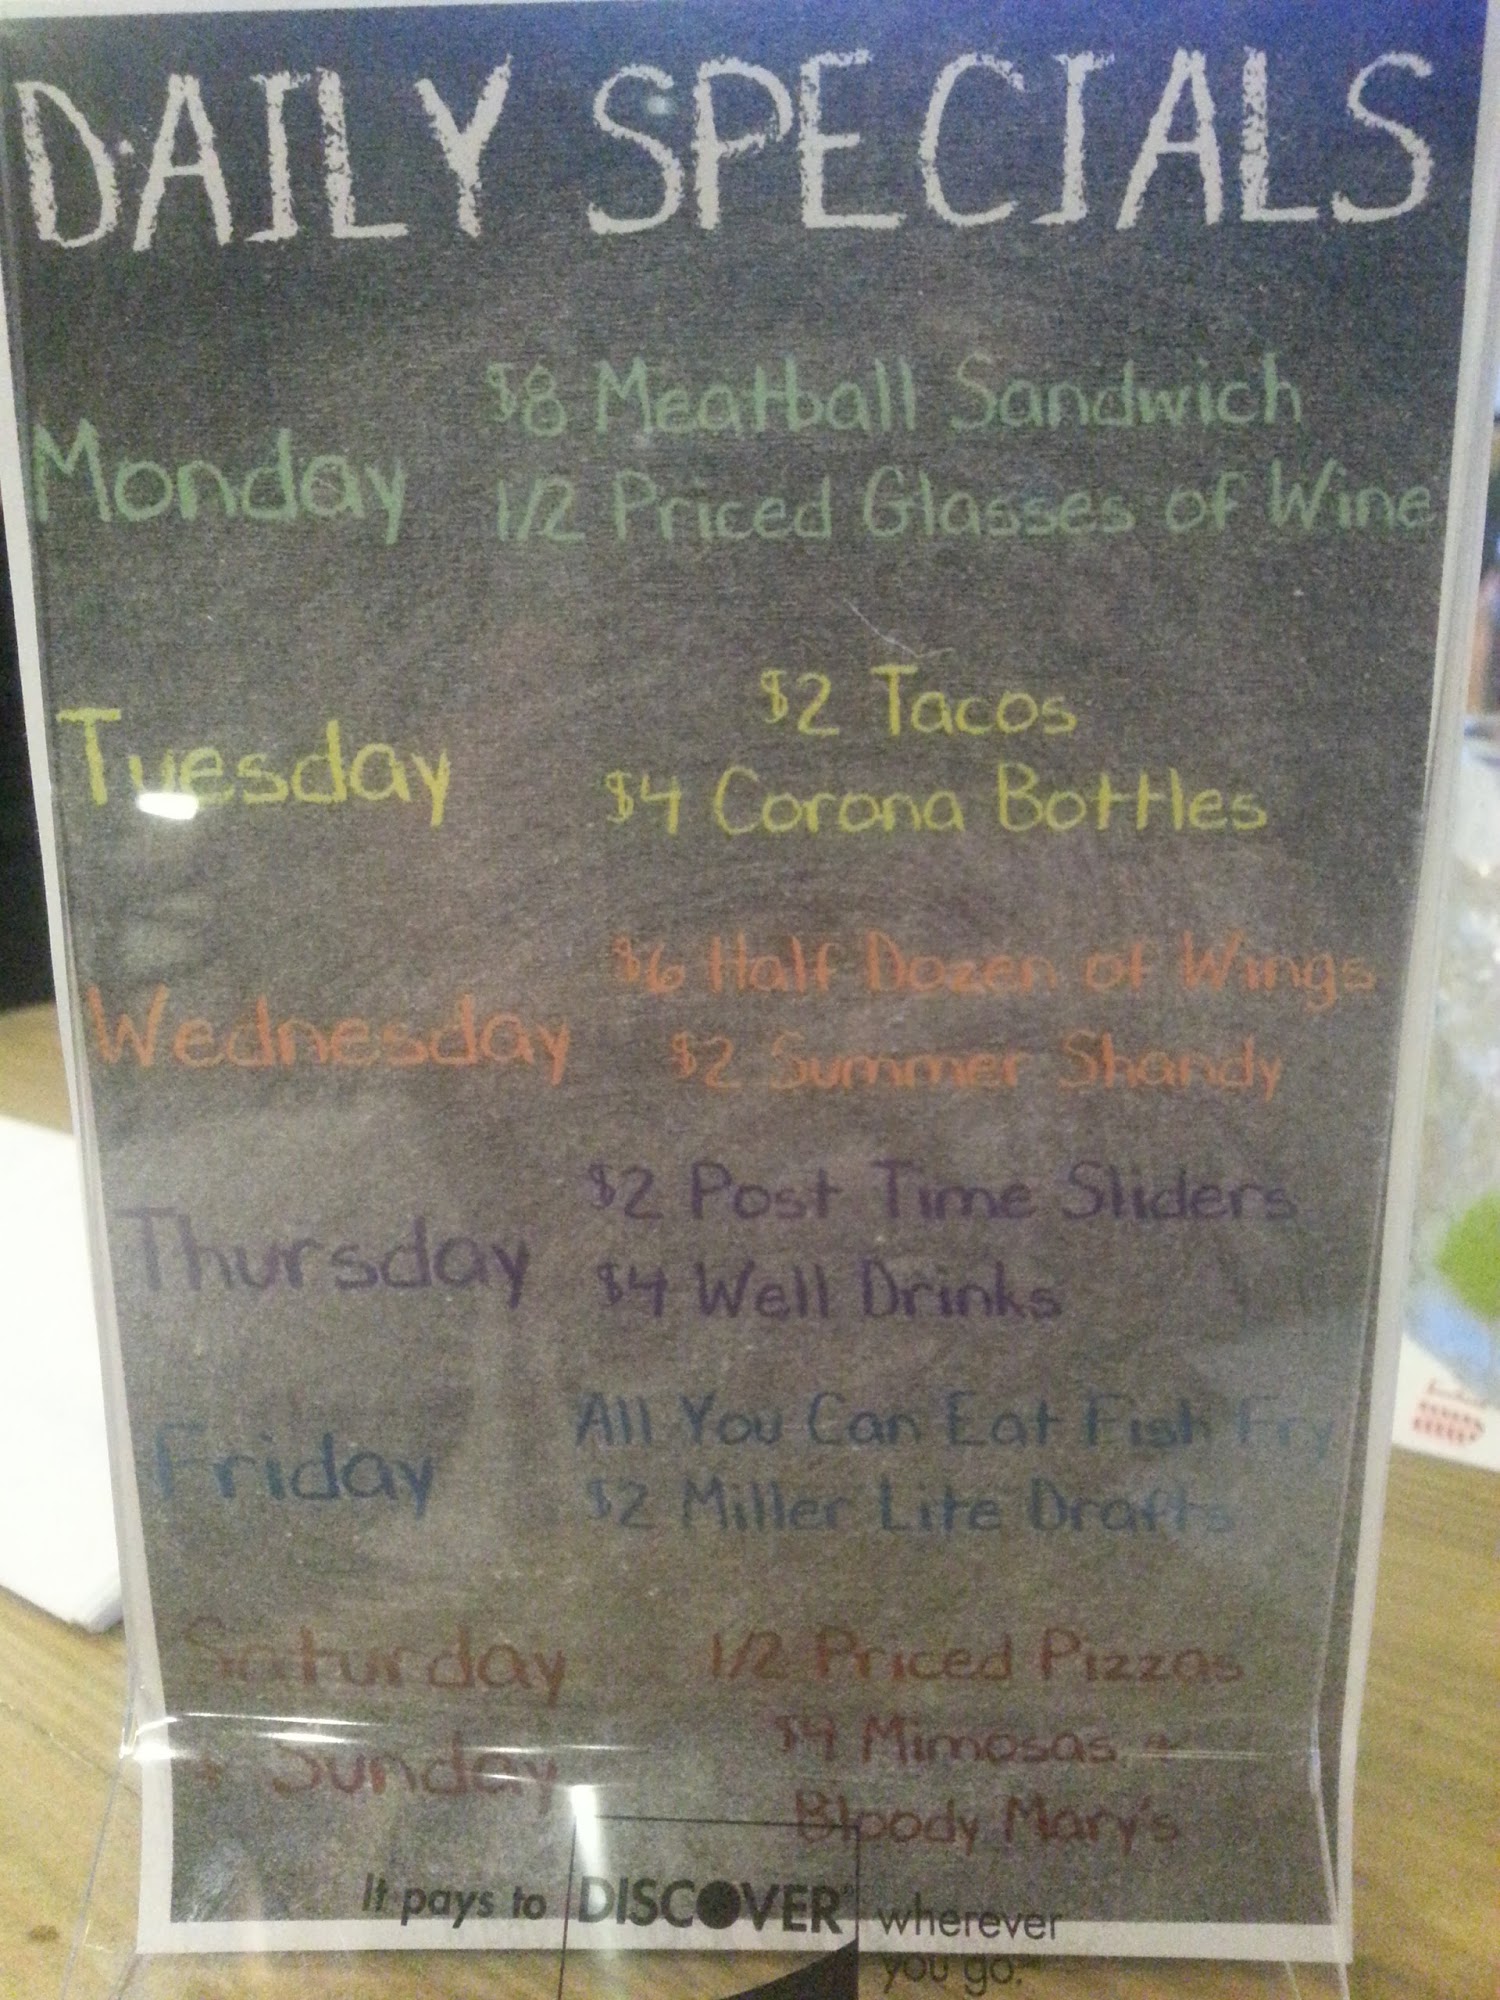 DAILY SPECIALS
Monday
$8 Meatball Sandwich
1/2 Priced Glasses of Wine
Tuesday
$2 Tacos
$4 Corona Bottles
Wednesday
$6 Half Dozen of Wings
$2 Summer Shandy
Thursday
$2 Post Time Sliders
$4 Well Drinks
Friday
All You Can Eat Fish Fry
$2 Miller Lite Drafts
Saturday
Sunday
1/2 Priced Pizzas
$4 Mimosas
Bloody Mary's
It pays to DISCOVER® wherever
you go.